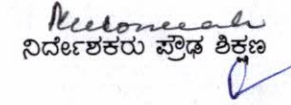 ನಿರ್ದೇಶಕರು ಪ್ರೌಢ ಶಿಕ್ಷಣ